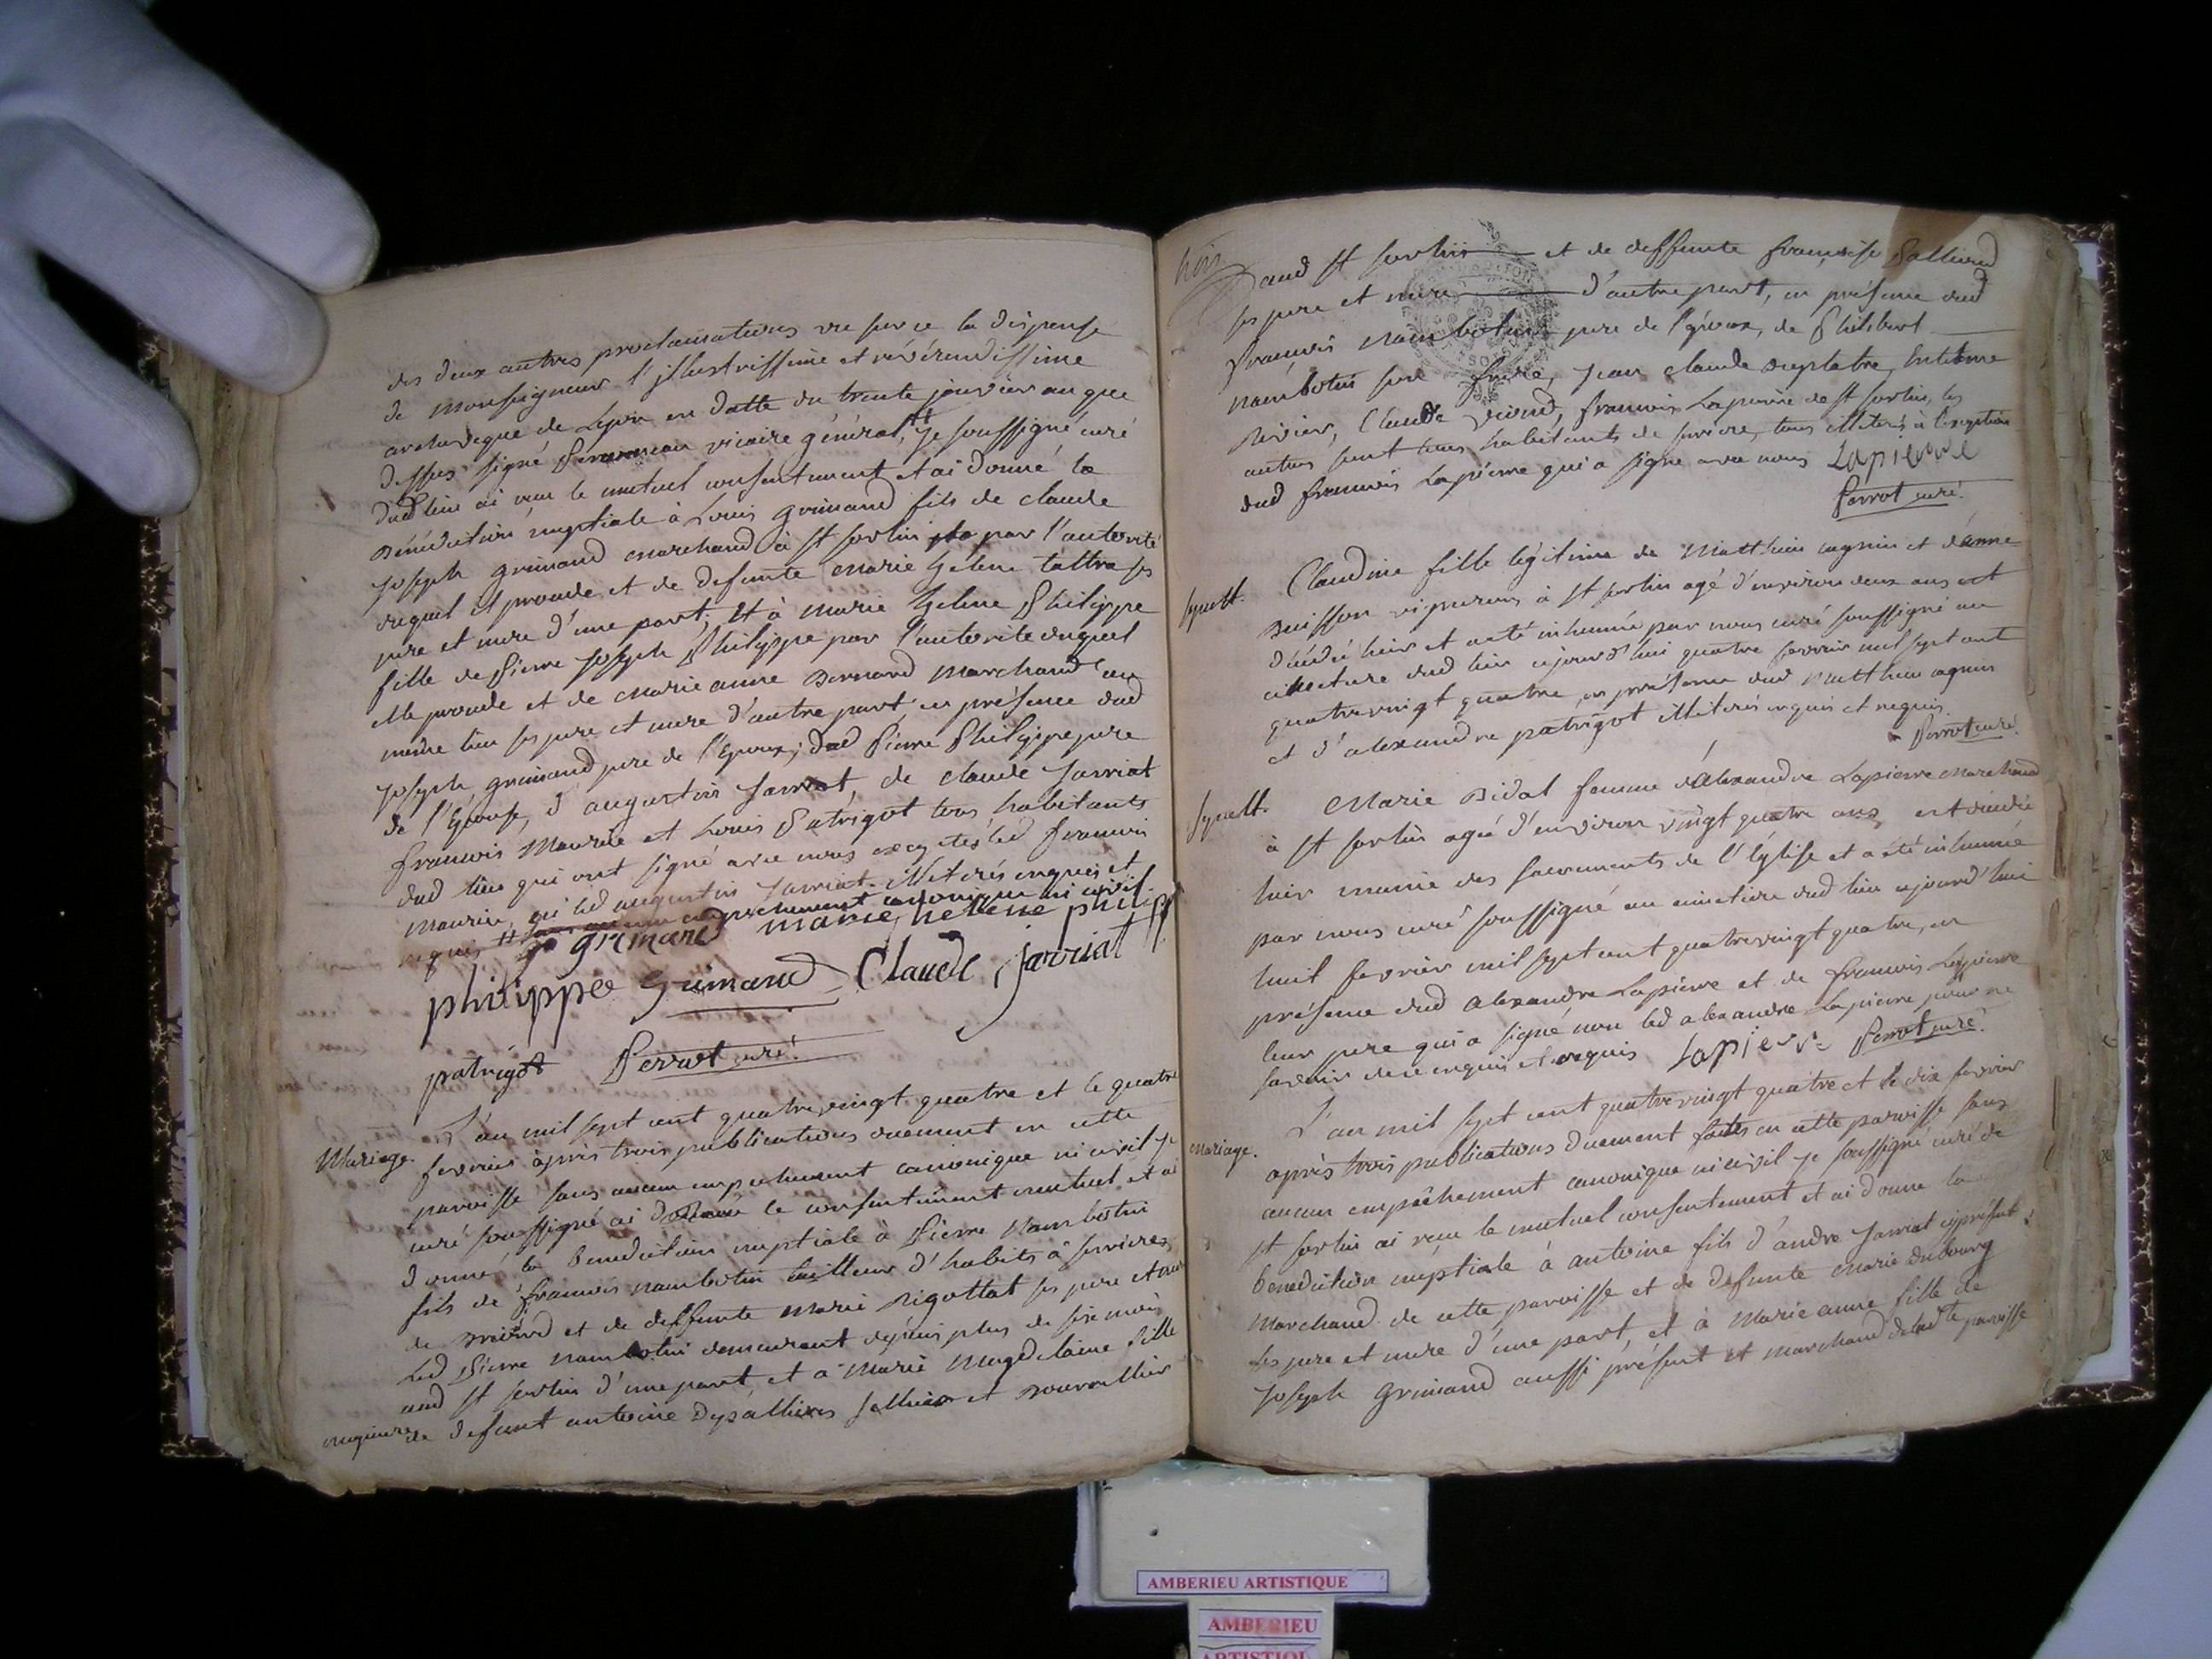 des deux autres proclamations vu sur ce la dispense
de Monseigneur l'illustrissime et révérendissime
archeveque de Lyon en datte du trente janvier an que
dessus signé vicaire général, # je soussigné curé
dud lieu ai reçu le mutuel consentement et ai donné la
Bénédiction nuptiale à Louis grimand fils de claude
joseph grimand marchand à st sorlin par l'autorité
duquel il procede, et de defunte marie helene tattra ses
pere et mere d'une part; et à marie helene Philippe
fille de Pierre joseph Philippe par l'autorité duquel
elle procede et de marie anne Bernard marchand au
meme lieu ses pere et mere d'autre part en présence dud
joseph grimand pere de l'Epoux; dud Pierre Philippe pere
de l'Épouse, d'augustin jarriat, de claude jarriat
francois Maurin et Louis Patrigot tous habitants
dud lieu qui ont signé avec nous exceptés led francois
maurin, led augustin jarriat illiterés enquis et
requis # sans aucun empechement canonique ni civil
grimand marie helene philipp
philippe Grimand Claude jarriat
patrigot Perrot curé.
Mariage. L'an mil sept cent quatre vingt quatre et le quatre
fevrier après trois publications duement en cette
paroisse sans aucun empechement canonique ni civil je
curé soussigné ai le consentement mutuel et ai
donné la benediction nuptiale à Pierre nambotin
fils de francois nambotin tailleur d'habits à serrieres
de Briord et de deffunte Marie Rigottat ses pere et mere
led Pierre nambotin demeurant depuis plus de six mois
aud st sorlin d'une part, et a Marie Magdelaine fille
de defunt antoine Dupallieres sellier et bourrellier
aud st sorlin et de deffunte francoise Salliend
ses pere et mere d'autre part, en présence dud
francois nambotin pere de l'époux, de Philibert
nambotin son frere, jean claude Antoine
Rivier, Claude francois Lapierre de st sorlin, les
autres sont tous habitants de serriere, tous illiterés à l'exception
dud francois Lapierre qui a signé avec nous Lapierre
Perrot curé.
sepult. Claudine fille légitime de Matthieu cagnin et d'anne
buisson vigneron à st sorlin agé d'environ deux ans est
décédé hier et a été inhumé par nous curé soussigné au
cimetiere dud lieu cejourd'hui quatre fevrier mil sept cent
quatre vingt quatre, en présence dud matthieu cagnin
et d'alexandre patrigot illiterés enquis et requis.
Perrot curé.
sepult. Marie Bidal femme d'alexandre Lapierre marchand
à st sorlin agée d'environ vingt quatre ans est decedée
hier munie des sacrements de l'église et a été inhumée
par nous curé soussigné au cimetiere dud lieu cejourd'hui
huit fevrier mil sept cent quatre vingt quatre, en
présence dud alexandre Lapierre et de francois Lapierre
leur pere qui a signé non led alexandre Lapierre pour ne
savoir de ce enquis et requis Lapierre Perrot curé.
mariage. L'an mil sept cent quatre vingt quatre et le dix fevrier
après trois publications duement faites en cette paroisse sans
aucun empêchement canonique ni civil je soussigné curé de
st sorlin ai reçu le mutuel consentement et ai donné la
benediction nuptiale à antoine fils d'andré jarriat cy présent
marchand de cette paroisse et de defunte marie dubourg
ses pere et mere d'une part, et à Marie anne fille de
joseph Grimand aussi présent et marchand de lad te paroisse
AMBERIEU ARTISTIQUE
AMBERIEU
ARTISTIQUE